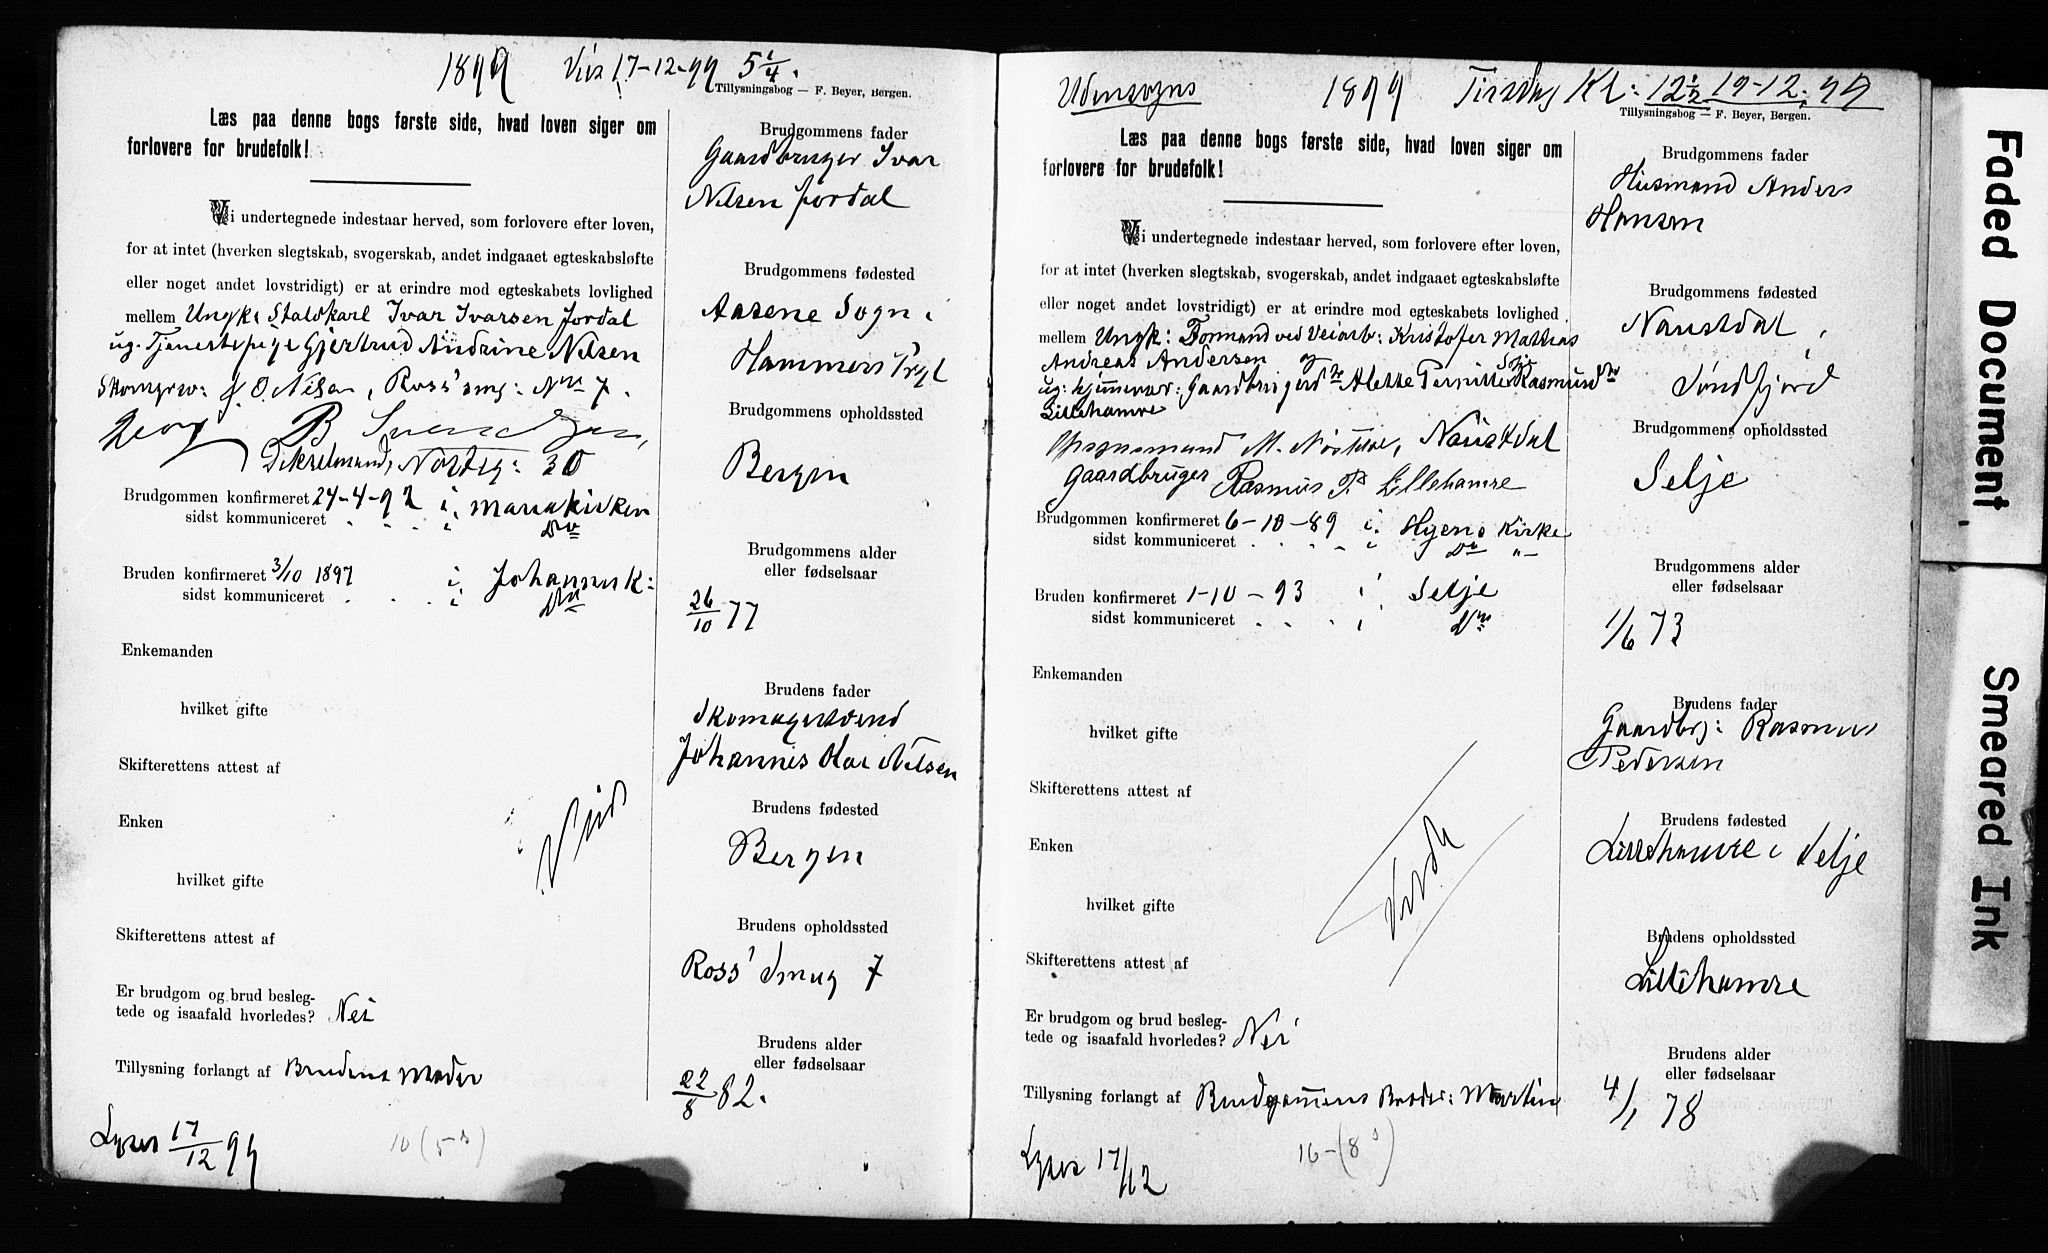 1899 Vies 17-12-99 5 1/4.
Tillysningsbog — F. Beyer, Bergen.
Læs paa denne bogs første side, hvad loven siger om
forlovere for brudefolk!
Vi undertegnede indestaar herved, som forlovere efter loven,
for at intet (hverken slegtskab, svogerskab, andet indgaaet egteskabsløfte
eller noget andet lovstridigt) er at erindre mod egteskabets lovlighed
mellem Ungk: Staldkarl Ivar Ivarsen Jordal
ug. Tjenestepige Gjertrud Andrine Nilsen
J. O. Nilsen, Ross' smg: No 7.
Georg B Svendsen,
30
Brudgommen konfirmeret 24-4-92 i Mariakirken
sidst kommuniceret . . . i Do
Bruden konfirmeret 3/10 1897 i Johannesk:
sidst kommuniceret . . . i Do
Enkemanden
hvilket gifte
Skifterettens attest af
Enken
hvilket gifte
Skifterettens attest af
Viet
Er brudgom og brud besleg-
tede og isaafald hvorledes? Nei
Tillysning forlangt af Brudens Moder
Lyses 17/12 99
10 (5 s)
Brudgommens fader
Gaardbruger Ivar
Nilsen Jordal
Brudgommens fødested
Aasene Sogn i
Hammers Prgl
Brudgommens opholdssted
Bergen
Brudgommens alder
eller fødselsaar
26/10 77
Brudens fader
Skomagersvend
Johannes Olai Nilsen
Brudens fødested
Bergen
Brudens opholdssted
Ross' Smug 7
Brudens alder
eller fødselsaar
22/8 82.
Udensogns 1899 Tirsdag Kl: 12 1/2 19-12-99
Tillysningsbog — F. Beyer, Bergen.
Læs paa denne bogs første side, hvad loven siger om
forlovere for brudefolk!
Vi undertegnede indestaar herved, som forlovere efter loven,
for at intet (hverken slegtskab, svogerskab, andet indgaaet egteskabsløfte
eller noget andet lovstridigt) er at erindre mod egteskabets lovlighed
mellem Ungk: Formand ved Veiarb: Kristofer Mathias
Andreas Andersen og
ug: hjemmevær: Gaardbrugerdtr Alette Pernille Rasmusdtr
Lillehamre
M. Naustdal
Gaardbruger Rasmus P. Lillehamre
Brudgommen konfirmeret 6-10-89 i Hyens Kirke
sidst kommuniceret . . . i Do "
Bruden konfirmeret 1-10-93 i Selje
sidst kommuniceret . . . i Do
Enkemanden
hvilket gifte
Skifterettens attest af
Enken
hvilket gifte
Skifterettens attest af
Er brudgom og brud besleg-
tede og isaafald hvorledes? Nei
Tillysning forlangt af Brudgommens Broder: Martin
Lyses 17/12
16-(8 s)
Brudgommens fader
Husmand Anders
Hansen
Brudgommens fødested
Naustdal i
Søndfjord
Brudgommens opholdssted
Selje
Brudgommens alder
eller fødselsaar
1/6 73
Brudens fader
Gaardbrg: Rasmus
Pedersen
Brudens fødested
Lillehamre i Selje
Brudens opholdssted
Lillehamre
Brudens alder
eller fødselsaar
4/1 78
Faded Document
Smeared Ink